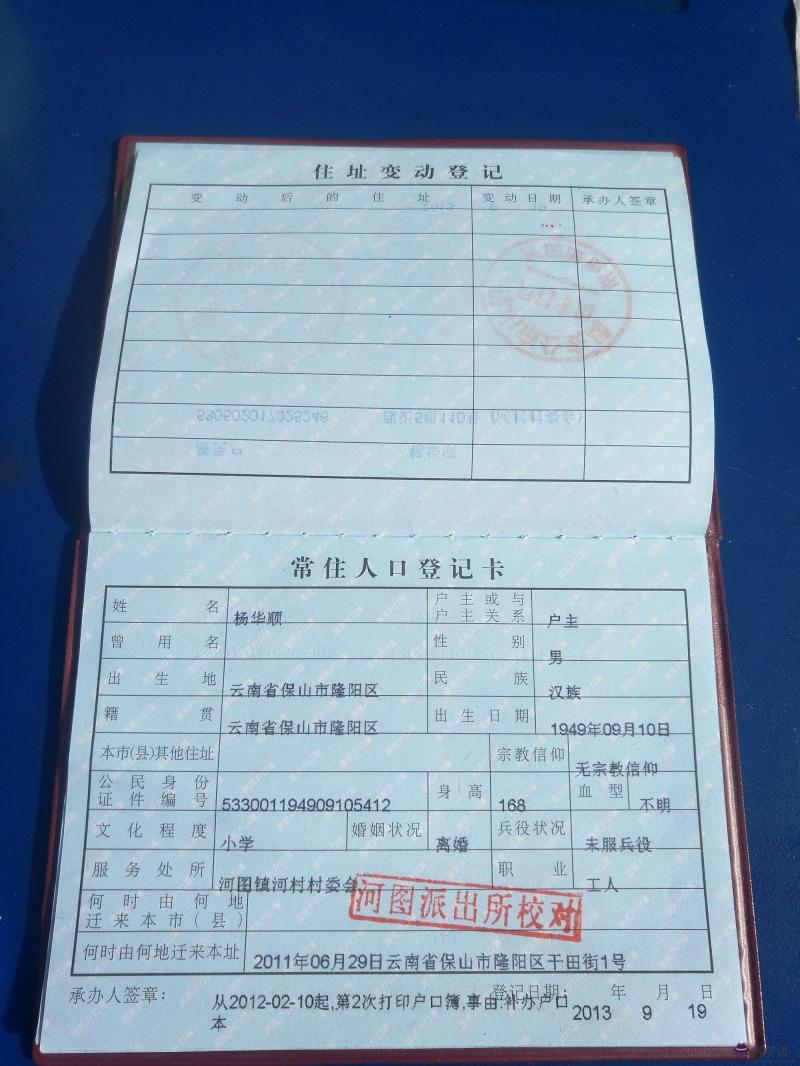 住址变动登记
变动后的住址 变动日期 承办人签章
常住人口登记卡
姓名 杨华顺 户主或与户主关系 户主
曾用名 性别 男
出生地 云南省保山市隆阳区 民族 汉族
籍贯 云南省保山市隆阳区 出生日期 1949年09月10日
本市(县)其他住址 宗教信仰 无宗教信仰
公民身份证件编号 533001194909105412 身高 168 血型 不明
文化程度 小学 婚姻状况 离婚 兵役状况 未服兵役
服务处所 河图镇河村村委会 职业 工人
何时由何地迁来本市(县)
河图派出所校对
何时由何地迁来本址 2011年06月29日云南省保山市隆阳区干田街1号
承办人签章: 登记日期: 年 月 日
从2012-02-10起,第2次打印户口簿,事由:补办户口本 2013 9 19